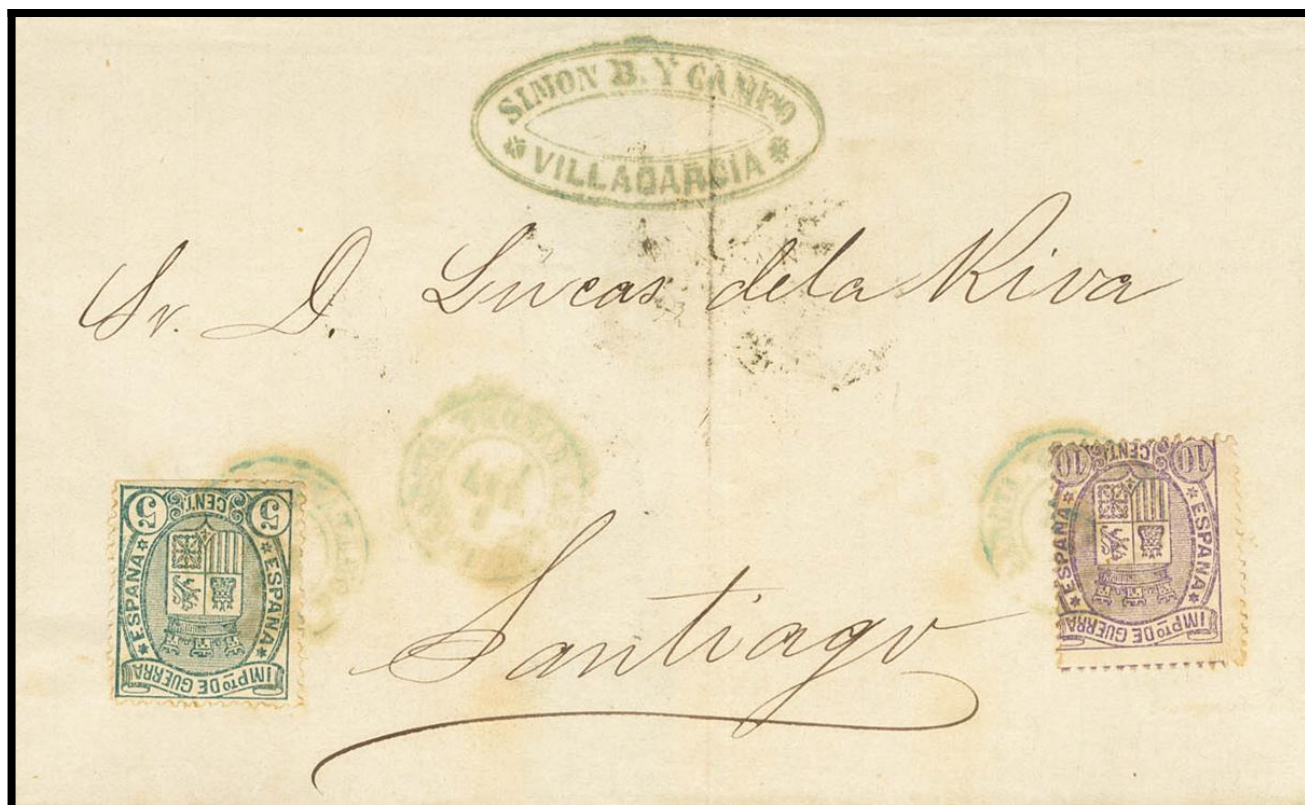 SIMON B. Y CAMPO
VILLAGARCIA
Sr. D. Lucas de la Riva
Santiago
5 CENT. 5
ESPAÑA ESPAÑA
IMPto DE GUERRA
10 CENT. 10
ESPAÑA ESPAÑA
IMPto DE GUERRA